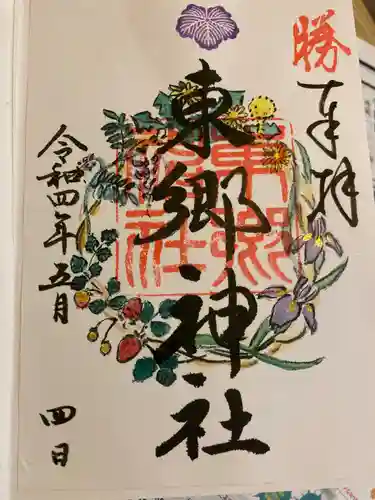 勝
奉拝
東郷神社
東郷神社
令和四年五月
四日